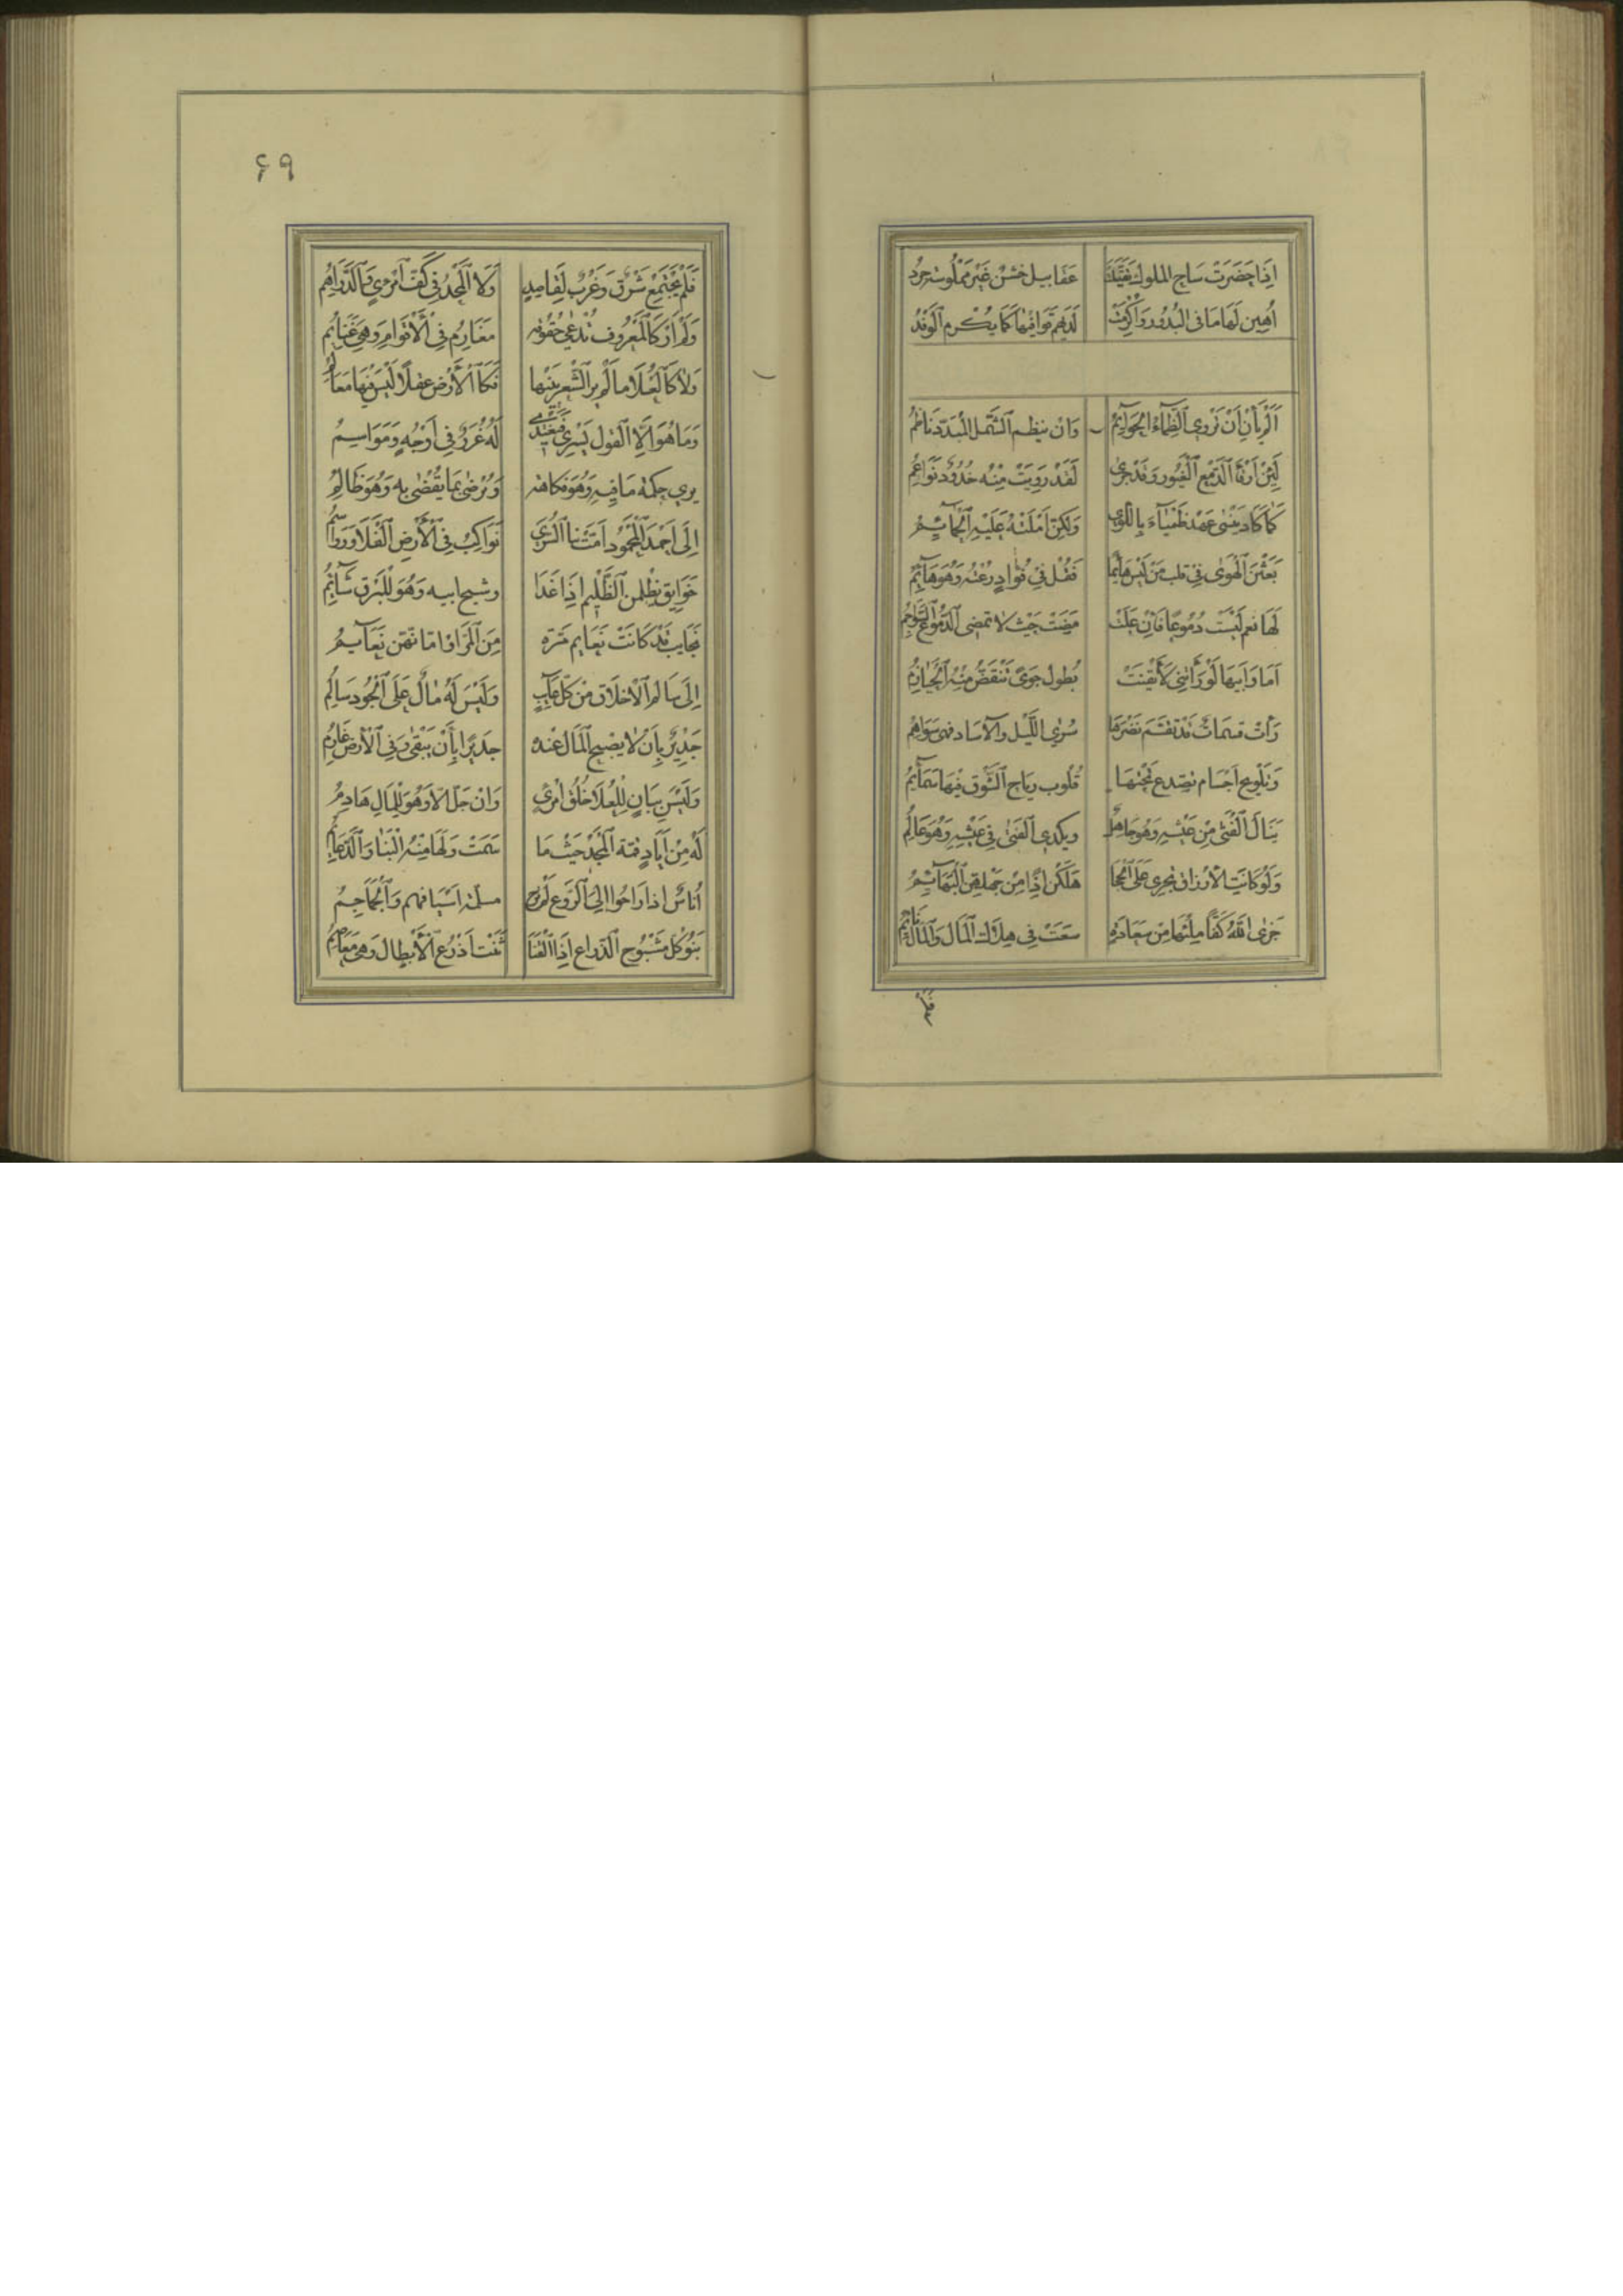 اِذَا حَضَرَتْ سَاحِ الملوك عَفَابِيل خشن غَيْر مَمْلُوسَة جرد
اُهِين لَهَا مَا فى البُدُور وَاُكْرِمَتْ لَدَيْهِم قَوَافِيهَا كَمَا يُكْرم اَلْوَفْدُ
اَلَمْ يَأْنِ اَنْ تَرْوِي اَلظِّمَاءُ اَلْحَوَائِمُ وَانْ يَنظِم اَلشَّمْل المُبَدّد نَاظِمُ
لَئِنْ اَرْقَأَ اَلدَّمْع اَلْغَيُور وَقَدْ جَرَى لَقَدْ رَوِيَتْ مِنْه خُدُودٌ نَوَاعِمُ
كَمَا كَادَ يَنْسَى عَهْدَ ظَمْيَاءَ بِاللِّوَى وَلكِنْ اَمْلَتْهُ عَلَيْهِ اَلْحَمَائِمُ
بَعَثْنَ اَلْهَوَى فِي قلب مَنْ لَيْسَ هَائِمًا فَقُلْ فِي فُؤَادٍ رُعْنَهُ وَهُوَ هَائِمُ
لَهَا نعم لَيْسَتْ دُمُوعًا فَاِنْ عَلَتْ مَضَتْ حَيْث لَا تمضى اَلدُّمُوعُ اَلسَّوَاجِمُ
اَمَا وَاَبِيهَا لَوْ رَأَتْنِي لَأَيْقَنَتْ بُطُول جَوىً تَنْقَضُّ مِنْهُ اَلْحَيَازِمُ
رَأَتْ قسمات قَدْ تقَسّمَ نَضْرَهَا سُرَى اللَّيْل وَالآسَاد فهى سَوَاهِم
وَتَلْوِيح اَجْسَام تصدع تَحْتهَا قُلُوب رِيَاح اَلشَّوْق فِيهَا سَمَائِمُ
يَنَالُ اَلْفَتَى مِنْ عَيْشِهِ وَهُوَ جَاهِلٌ وَيكدى اَلفَتَى فِي عَيْشِهِ وَهُوَ عَالِمُ
وَلَوْ كَانَتِ الأَرْزَاق تجْرِي عَلَى اَلْحِجَا هَلَكْن اِذًا مِنْ جَهلهنّ اَلْبَهَائِمُ
جَزَى اَللّٰهُ كَفًّا مِلْئهَا مِنْ سَعَادَةٍ سَعَتْ فِي هلَاك اَلْمَال وَالْمَالُ نَائِمُ
فَلَمْ
٦٩
فَلَمْ يَجْتَمِعْ شَرْق وَغَرْبٌ لِقَاصِدٍ وَلَا اَلْمَجْدُ فِي كَفّ اَمْرِيٍ وَالدَّرَاهِمُ
وَلَمْ اَرَ كَالْمَعْرُوف تُدْعَى حُقُوقُه مَغَارِمُ فِي اْلاَقْوَامِ وَهِيَ غَنَائِمُ
وَلَا كَالْعُلَا مَا لَمْ يُر الشّعْر بَيْنهَا فَكَالأَرْض غفلًا لَيْسَ فِيهَا مَعَالِمُ
وَمَا هُوَ اِلَّا اَلقول يَسْرِي فَيَغْتَدِى لَهُ غُرَرٌ فِي اَوْجُهٍ وَمَوَاسِمُ
يرى حِكْمَة مَا فِيهِ وَهُوَ فكَاهَة وَيُرْضى بِمَا يَقْضِى بِهِ وَهُوَ ظَالِمُ
اِلَى اَحْمَد المَحْمُود اَمَّتْ بِنَا السُّرَى نَوَاكِبُ فِي اَلأَرْضِ اَلْفَلَا وَرَوَاسِمُ
خَوَانِق يَظْلِمْن اَلظَّلِيم اِذَا غَدَا وشيح ابيه وَهُوَ لِلْبَرْقِ شَائِمُ
نَجَايب قَدْ كَانَتْ نَعَايم مَرّة مِنَ اَلْمَرّ اَوْ امّاتهنّ نَعَايِمُ
اِلَى سَالِم اَلأَخْلَاق مِنْ كُلّ عَآئِبٍ وَلَيْسَ لَهُ مَالٌ عَلَى اَلْجُود سَالِمُ
جَدِيرٌ بِأَنْ لَا يصْبِح المَال عِنْدَه جديرًا بِأَنْ يَبْقَى وَفِي اَلأَرْض غَارِمُ
وَلَيْس بِبَانٍ لِلْعُلَا خُلُق اَمْرِيٍ وَانْ جَلّ الا وَهُوَ لِلْمَالِ هَادِمُ
لَهُ مِنْ اِيَادٍ قمّة اَلْمَجْد حَيْث مَا سَمَتْ وَلَهَا مِنْهُ اَلْبِنَا وَالدَّعَائِمُ
اُنَاسٌ اذا رَاحُوا اِلَى اَلرَّوْع لَمْ تَرُحْ مسلمَة اَسْيَافهم وَاَلْجَمَاجِمُ
بَنُو كُلّ مَشْبُوح اَلذّرَاع اِذَا اَلْقَنَا ثَنَتْ اَذْرُع اَلأَبْطَال وَهى مَعَاصِمُ